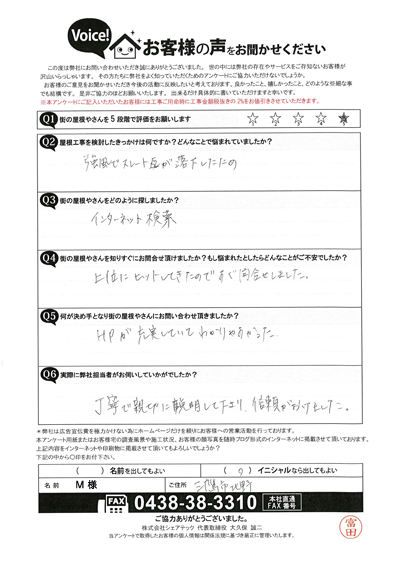 Voice!
お客様の声をお聞かせください
この度は弊社にお問い合わせいただき誠にありがとうございました。世の中には弊社の存在やサービスをご存知ないお客様が
沢山いらっしゃいます。その方たちに弊社をよく知っていただくためのアンケートにご協力いただけないでしょうか。
お客様のご意見をお聞かせいただき今後の活動に反映したいと考えております。良かったこと、嬉しかったこと、どのような些細な事
でも結構です。是非ご協力のほどお願いいたします。出来るだけ具体的に書いていただけますと幸いです。
※本アンケートにご記入いただいたお客様には工事ご用命時に工事金額税抜きの2%をお値引きさせていただきます。
Q1 街の屋根やさんを5段階で評価をお願いします ☆ ☆ ☆ ☆ ★
Q2 屋根工事を検討したきっかけは何ですか？どんなことで悩まれていましたか？
強風でスレート瓦が落下したため
Q3 街の屋根やさんをどのように探しましたか？
インターネット検索
Q4 街の屋根やさんを知りすぐにお問合せ頂けましたか？もし悩まれたとしたらどんなことがご不安でしたか？
上位にヒットしてきたのですぐ問合せしました。
Q5 何が決め手となり街の屋根やさんにお問い合わせ頂きましたか？
HPが充実していてわかりやすかった
Q6 実際に弊社担当者がお伺いしていかがでしたか？
丁寧で親切に説明してくださり、信頼がおけました。
＊弊社は広告宣伝費を極力かけない為にホームページだけを頼りにお客様への営業活動を行っております。
本アンケート用紙またはお客様宅の調査風景や施工状況、お客様の顔写真を随時ブログ形式のインターネットに掲載させて頂いております。
上記内容をインターネットや印刷物に掲載させて頂いてもよろしいでしょうか？
下記の中から〇印をお付下さい。
（　　）名前を出してもよい （ ○ ）イニシャルなら出してもよい
名前 M様 ご住所 三鷹市
FAX 0438-38-3310 本社直通 FAX番号
ご協力ありがとうございました。
株式会社シェアテック 代表取締役 大久保 誠二
当アンケートで取得したお客様の個人情報は関係法規に基づき厳正に管理いたします。
富田